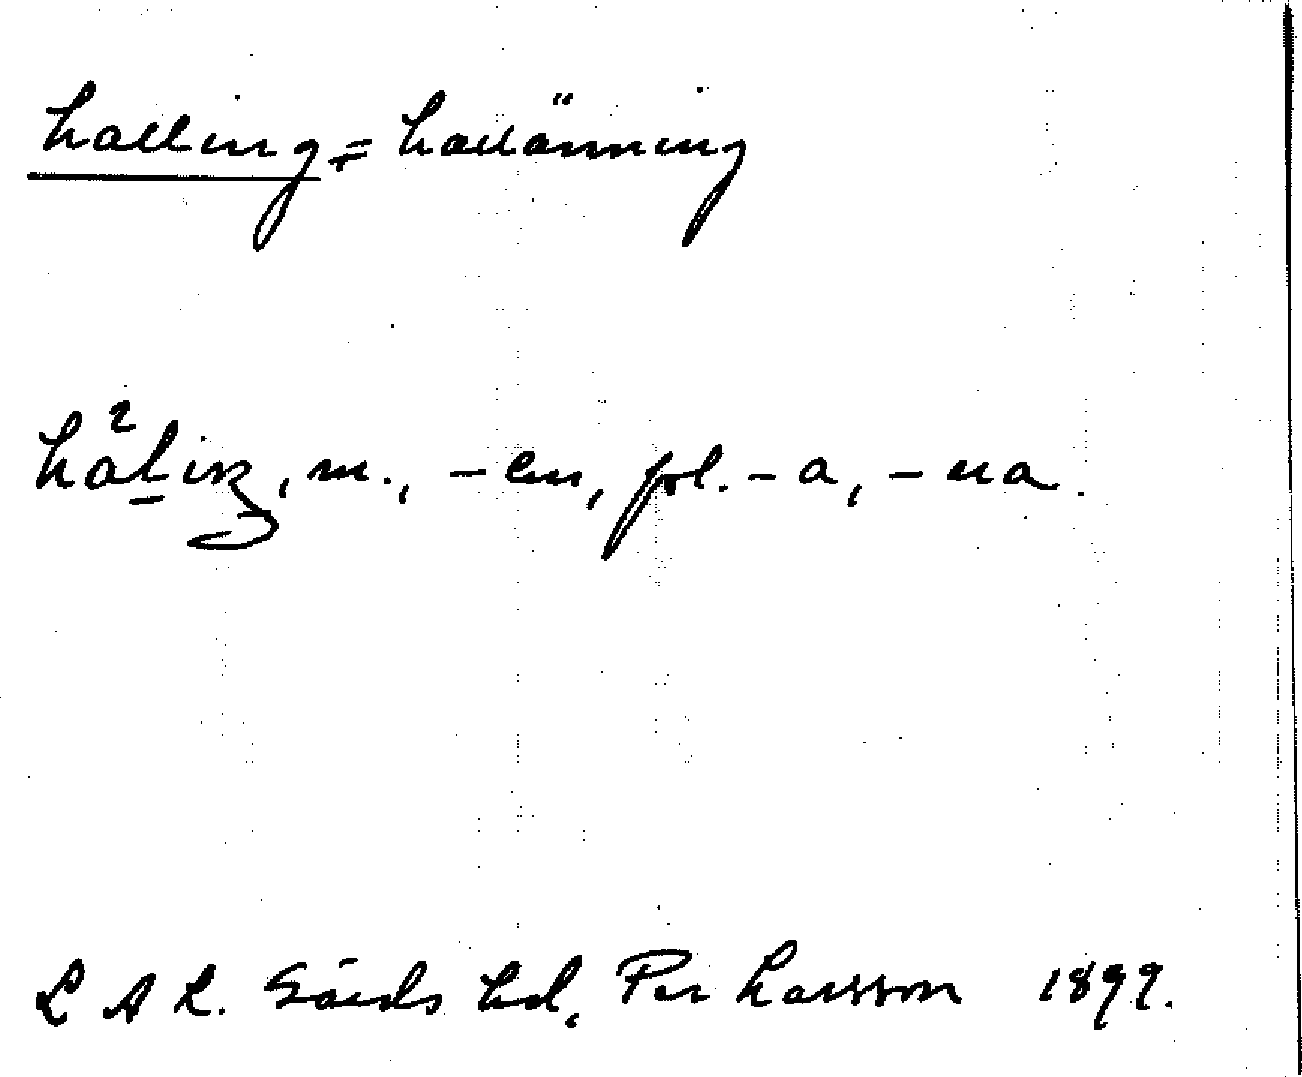 halling = hallänning
hal²iŋ, m., -en, pl. -a, -na.
L A L. Gärds hd, Per Larsson 1899.